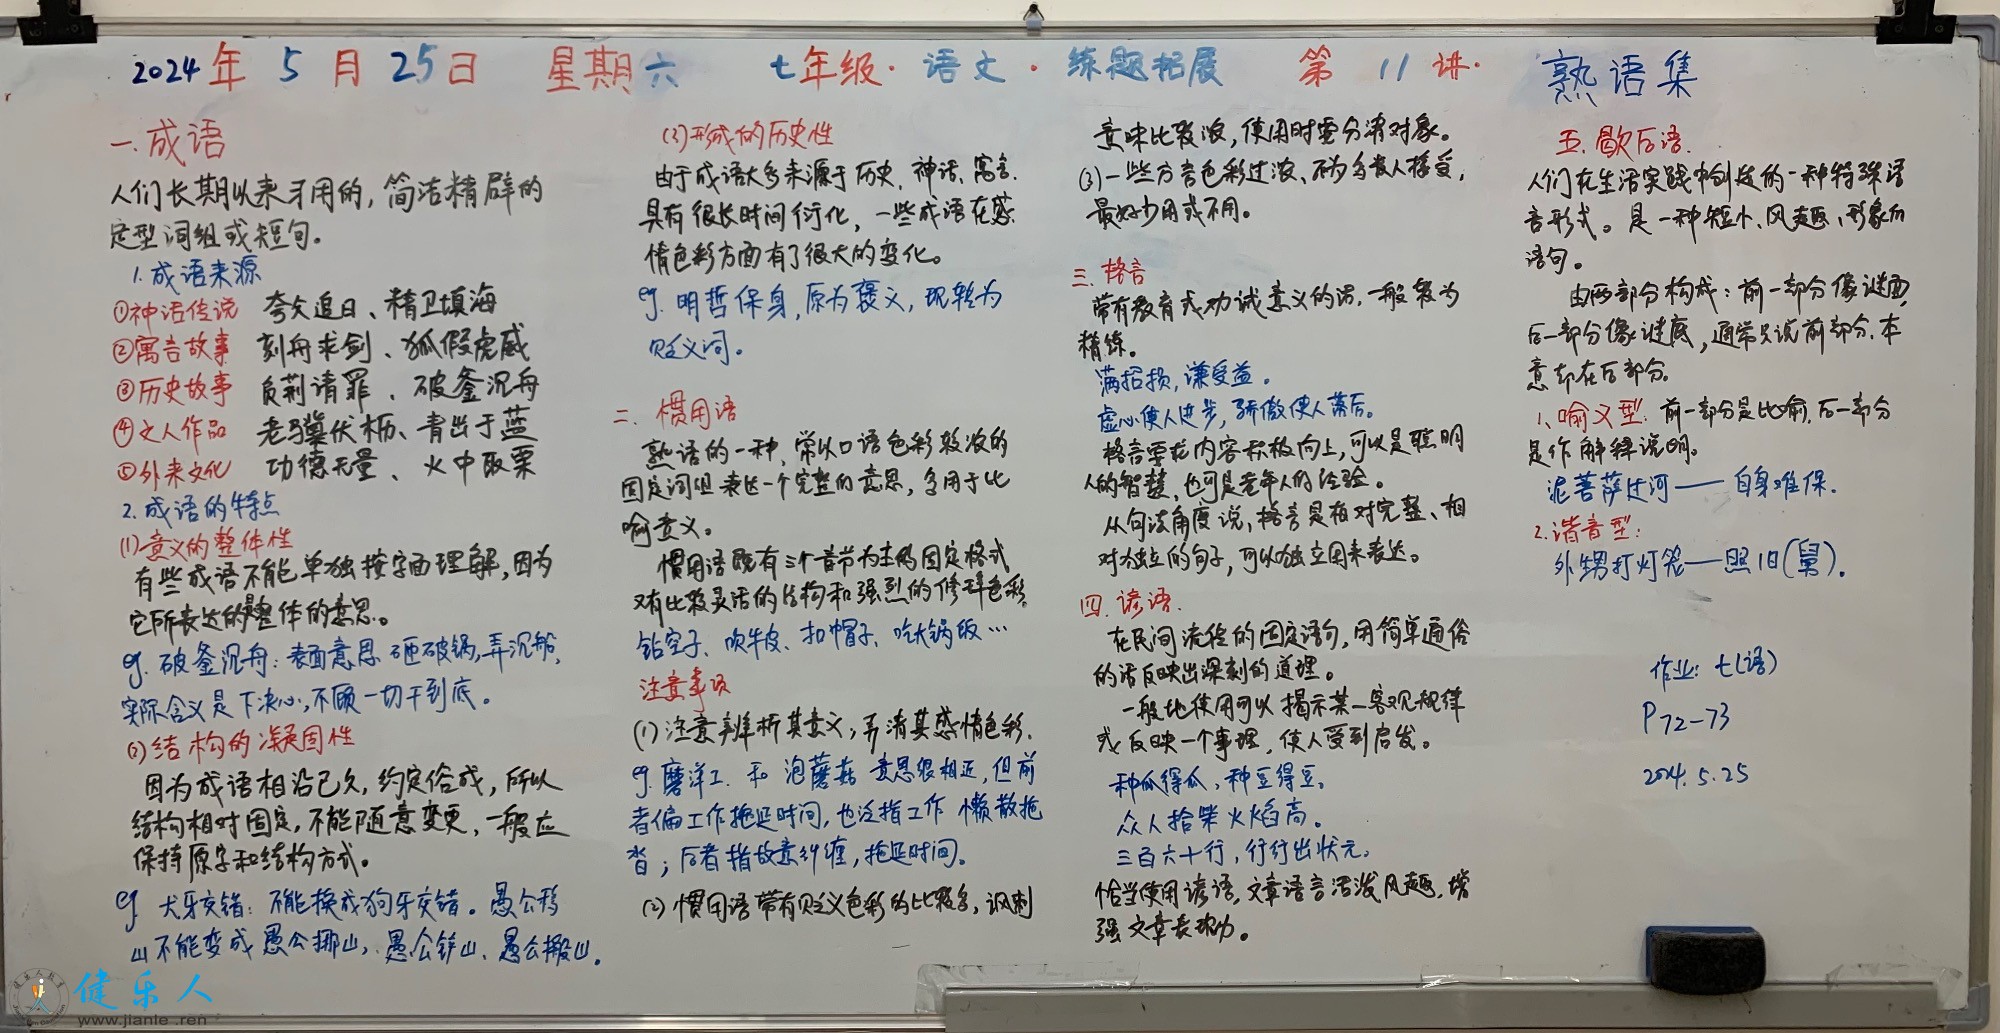 2024年5月25日 星期六 七年级·语文·练题拓展 第11讲· 熟语集
一.成语
人们长期以来习用的,简洁精辟的
定型词组或短句。
1.成语来源
①神话传说 夸父追日、精卫填海
②寓言故事 刻舟求剑、狐假虎威
③历史故事 负荆请罪、破釜沉舟
④文人作品 老骥伏枥、青出于蓝
⑤外来文化 功德无量、火中取栗
2.成语的特点
(1)意义的整体性
有些成语不能单独按字面理解,因为
它所表达的是整体的意思。
eg.破釜沉舟:表面意思 砸破锅,弄沉船,
实际含义是下决心,不顾一切干到底。
(2)结构的凝固性
因为成语相沿已久,约定俗成,所以
结构相对固定,不能随意变更,一般应
保持原字和结构方式。
eg 犬牙交错:不能换成狗牙交错。愚公移
山不能变成愚公挪山,愚公铲山、愚公搬山。
(3)形成的历史性
由于成语大多来源于历史、神话、寓言.
具有很长时间衍化,一些成语在感
情色彩方面有了很大的变化。
eg.明哲保身,原为褒义,现转为
贬义词。
二.惯用语
熟语的一种,常以口语色彩较浓的
固定词组表达一个完整的意思,多用于比
喻意义。
惯用语既有三个音节为主的固定格式
又有比较灵活的结构和强烈的修辞色彩.
钻空子、吹牛皮、扣帽子、吃大锅饭…
注意事项
(1)注意辨析其意义,弄清其感情色彩.
eg.磨洋工 和 泡蘑菇 意思很相近,但前
者偏工作拖延时间,也泛指工作懒散拖
沓;后者指故意纠缠,拖延时间。
(2)惯用语带有贬义色彩的比较多,讽刺
意味比较浓,使用时要分清对象。
(3)一些方言色彩过浓、不为多数人接受,
最好少用或不用。
三.格言
带有教育或劝诫意义的话,一般较为
精练。
满招损,谦受益。
虚心使人进步,骄傲使人落后。
格言要求内容积极向上,可以是聪明
人的智慧,也可是老年人的经验。
从句法角度说,格言是相对完整、相
对独立的句子,可以独立用来表达。
四.谚语.
在民间流传的固定语句,用简单通俗
的话反映出深刻的道理。
一般地使用可以揭示某一客观规律
或反映一个事理,使人受到启发。
种瓜得瓜,种豆得豆。
众人拾柴火焰高。
三百六十行,行行出状元。
恰当使用谚语,文章语言活泼风趣,增
强文章表现力。
五.歇后语.
人们在生活实践中创造的一种特殊语
言形式。是一种短小、风趣、形象的
语句。
由两部分构成:前一部分像谜面,
后一部分像谜底,通常只说前部分.本
意却在后部分。
1.喻义型:前一部分是比喻,后一部分
是作解释说明。
泥菩萨过河——自身难保.
2.谐音型:
外甥打灯笼——照旧(舅).
作业:七(语)
P72-73
2024.5.25
健乐人
www.jianle.ren